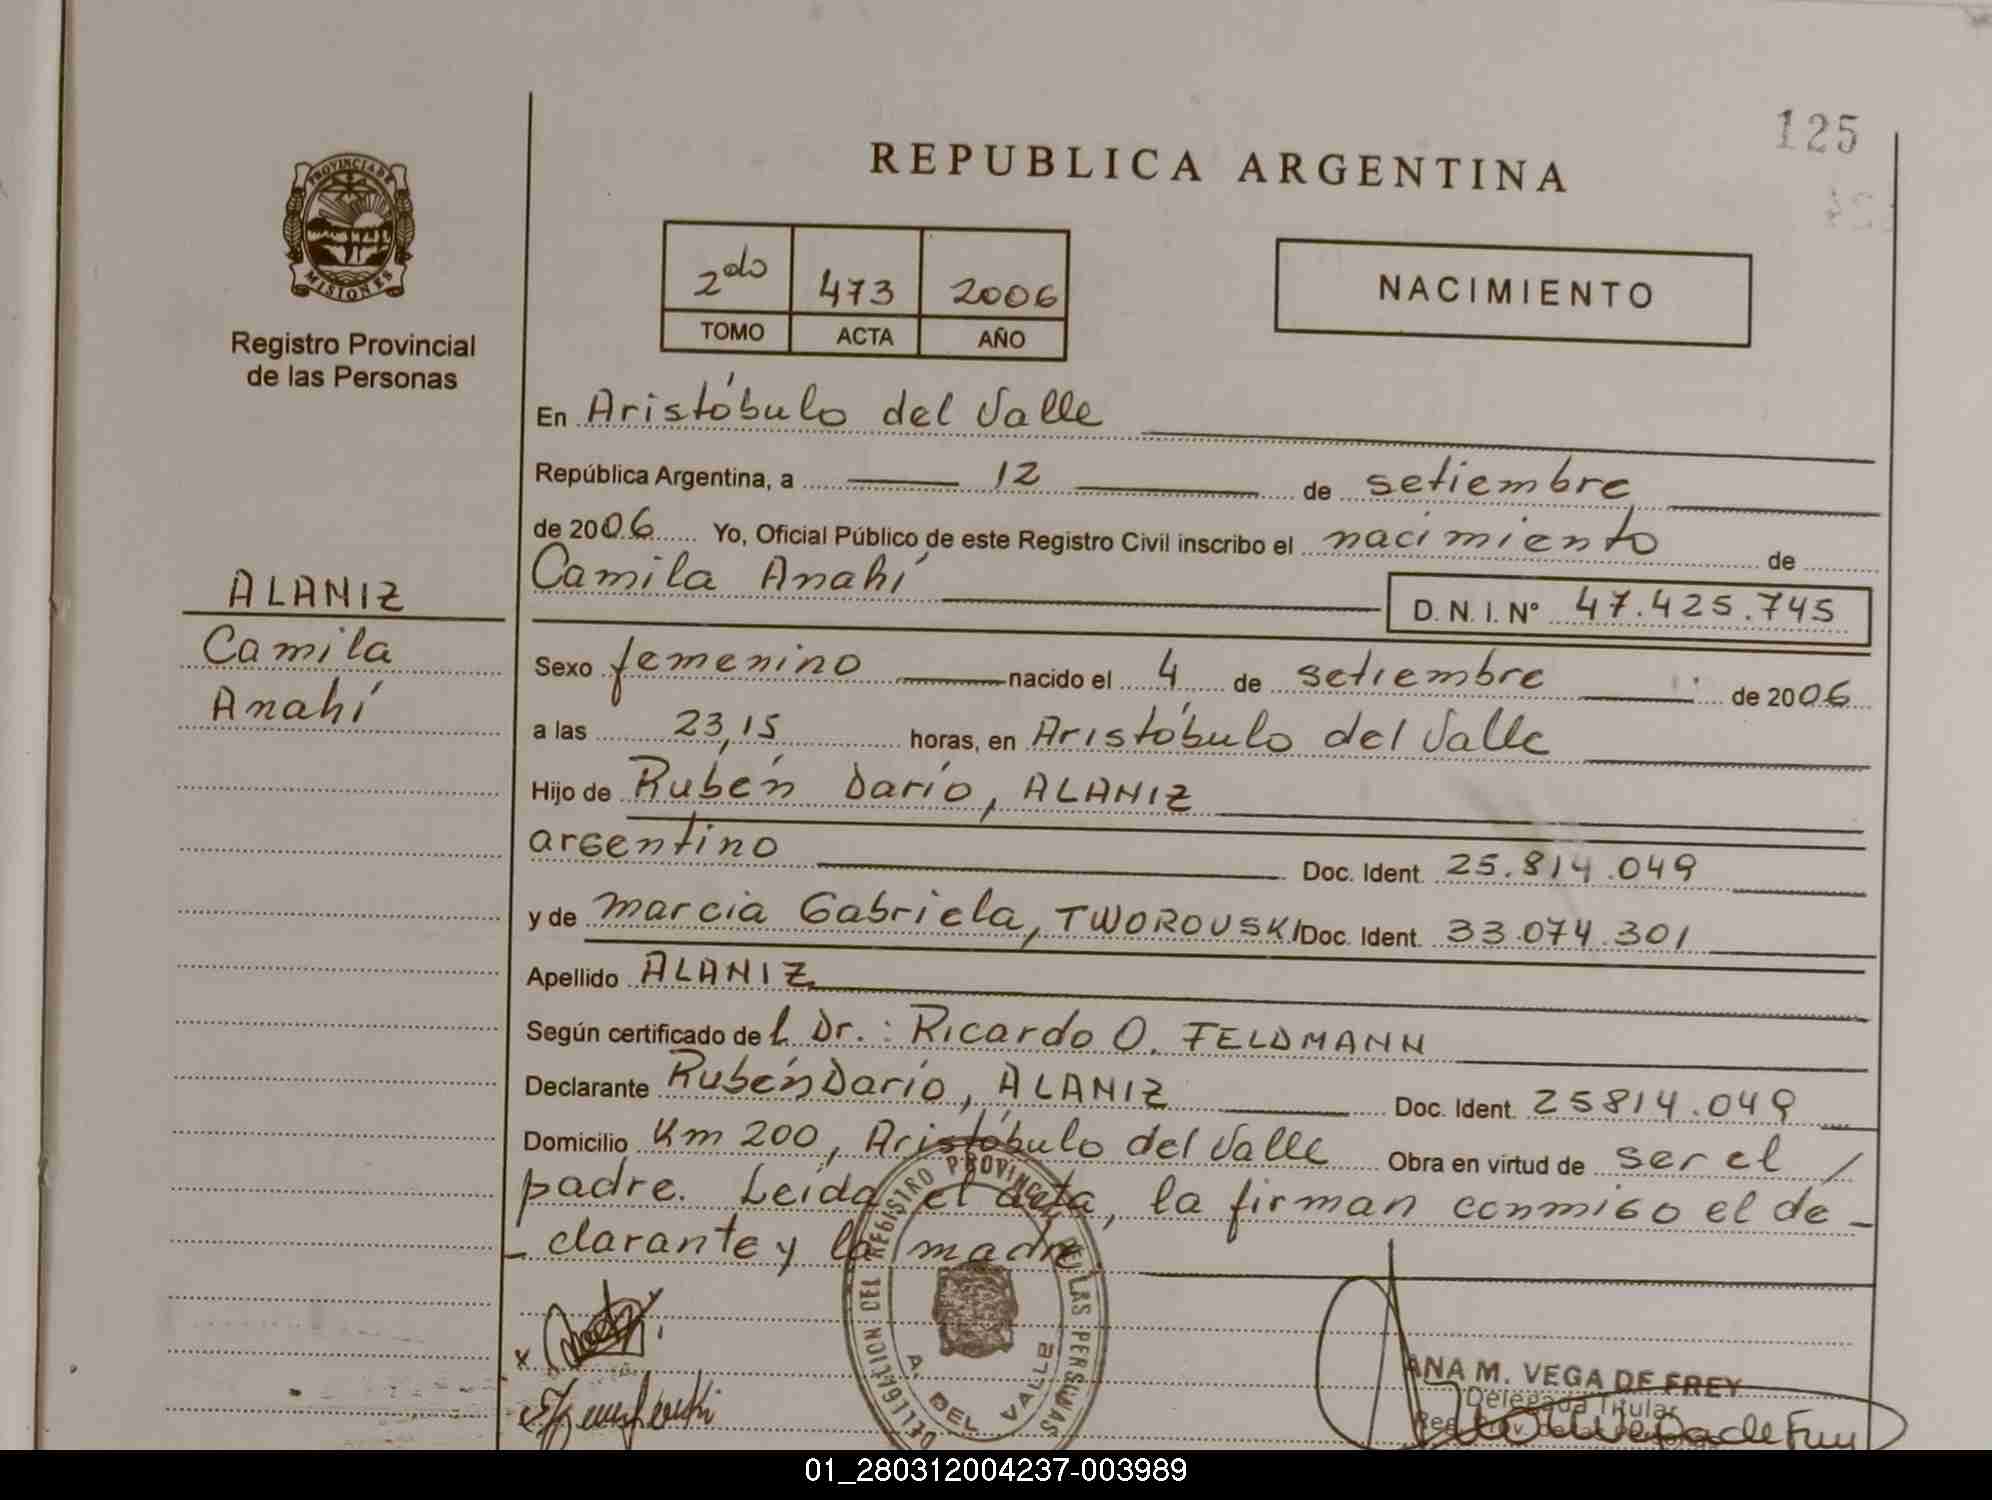 125
REPUBLICA ARGENTINA
PROVINCIA DE
MISIONES
Registro Provincial
de las Personas
2do 473 2006
TOMO ACTA AÑO
NACIMIENTO
En Aristóbulo del Valle
República Argentina, a 12 de setiembre
de 2006 Yo, Oficial Público de este Registro Civil inscribo el nacimiento de
Camila Anahí
D. N. I. Nº 47.425.745
ALANIZ
Camila
Anahí
Sexo femenino nacido el 4 de setiembre de 2006
a las 23,15 horas, en Aristóbulo del Valle
Hijo de Rubén Darío, ALANIZ
argentino Doc. Ident. 25.814.049
y de Marcia Gabriela, TWOROUSKI Doc. Ident. 33.074.301
Apellido ALANIZ
Según certificado del Dr.: Ricardo O. FELDMANN
Declarante Rubén Darío, ALANIZ Doc. Ident. 25814.049
Domicilio Km 200, Aristóbulo del Valle Obra en virtud de ser el /
padre. Leída el acta, la firman conmigo el de -
- clarante y la madre
DELEGACION DEL REGISTRO PROVINCIAL DE LAS PERSONAS
A. DEL VALLE
ANA M. VEGA DE FREY
Delegada Titular
01_280312004237-003989